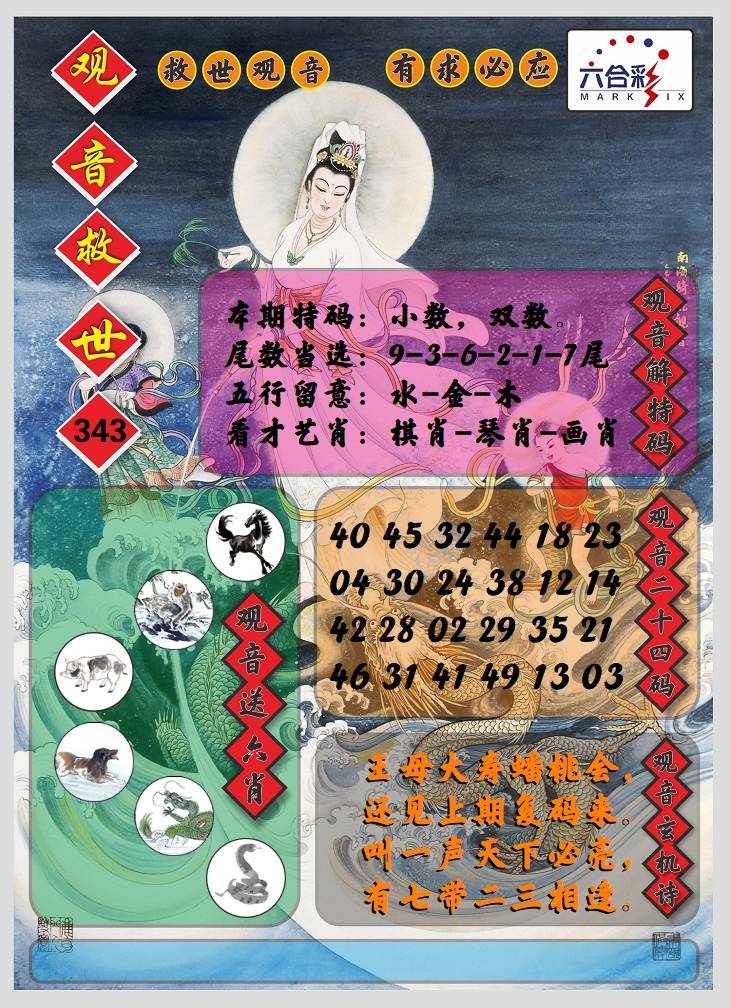 观音救世
343
救世观音 有求必应
六合彩
MARK SIX
本期特码：小数，双数。
尾数当选：9-3-6-2-1-7尾
五行留意：水-金-木
看才艺肖：棋肖-琴肖-画肖
观音解特码
40 45 32 44 18 23
04 30 24 38 12 14
42 28 02 29 35 21
46 31 41 49 13 03
观音二十四码
观音送六肖
王母大寿蟠桃会，
还见上期复码来。
叫一声天下必亮，
有七带二三相逢。
观音玄机诗